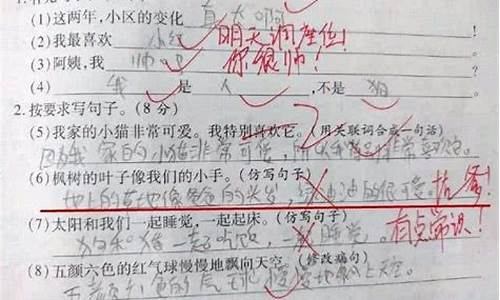 (1)这两年,小区的变化 真大啊
(2)我最喜欢 小红 明天调座位!
(3)阿姨,我 帅吧 你很帅!
(4) 我 是 人 ,不是 狗
2.按要求写句子。(8 分)
(5)我家的小猫非常可爱。我特别喜欢它。(用关联词合成一句话)
因为我家的小猫非常可爱,所以我特别非常喜欢它。
(6)枫树的叶子像我们的小手。(仿写句子)
地上的草地像爸爸的头发,绿油油的很可爱。 抗争!
(7)太阳和我们一起睡觉,一起起床。(仿写句子) 有点常识!
狗和猪一起吃饭,一起睡觉。
(8)五颜六色的红气球慢慢地飘向天空。(修改病句)
五颜六色的气球慢慢地飘上天空。